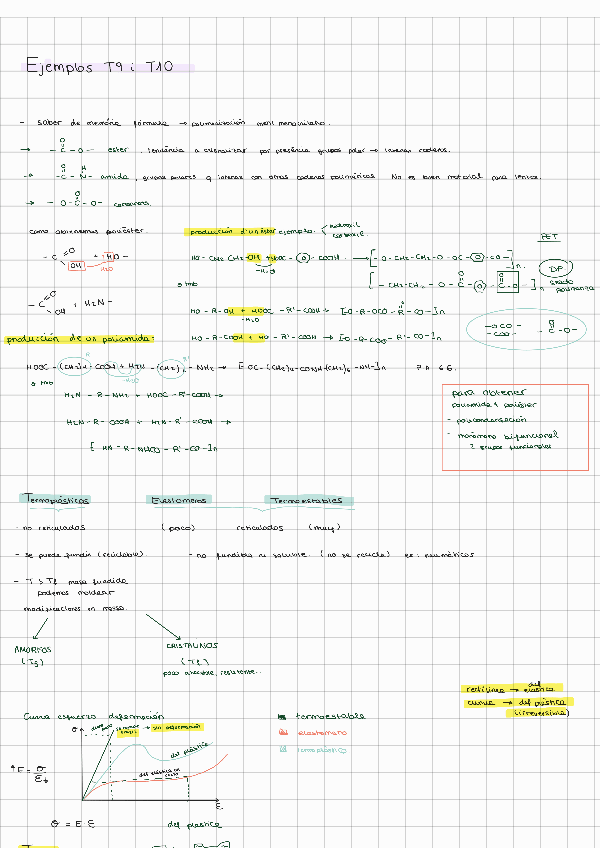 Ejemplos T9 i T10
- saber de memória fórmulas → polimerización monómero
→ -C-O- ester, tendencia a cristalizar por presencia grupos polar → interac. cadenas.
→ -C-N- amida, grupos polares q interac con otras cadenas poliméricas. No es buen material para
→ -O-C-O- carbonato.
como obtenemos poliéster.
producción d'un éster ejemplo:
PET
- C = O OH + HO -
H2O
HO - CH2 CH2 - OH + HOOC - COOH → [- O - CH2 - CH2 - O - OC - CO -]n
-H2O
DP
grado
[- CH2 - CH2 - O - C - C - O -]n
o tmb
- C = O OH + H2N -
HO - R - OH + HOOC - R' - COOH → [-O - R - OCO - R - CO -]n
-H2O
HO - R - COOH + HO - R' - COOH → [-O - R - COO - R' - CO -]n
- OCO -
- COO -
- C - O -
producción de un poliamida:
HOOC - (CH2)4 - COOH + H2N - (CH2)6 - NH2 → [OC - (CH2)4 - CONH (CH2)6 - NH -]n P.A 6 6.
-H2O
o tmb
H2N - R - NH2 + HOOC - R' - COOH →
H2N - R - COOH + H2N - R' - COOH →
[ HN - R - NHCO - R' - CO -]n
para obtener
poliamida i poliéster
- policondensación
- monómero bifuncional
2 grupos funcionales
Termoplásticos
Elastómeros
Termoestables
- no reticulados
(poco) reticulados (muy)
- se puede fundir (reciclable).
- no fundibles ni soluble. (no se recicla) es: neumáticos
- T > Tf masa fundida
podemos moldear
modificaciones en
AMORFOS
(Tg)
CRISTALINOS
(Tf)
poco resistente..
rectilínea → def elástica
curva → def plástica
(irreversible)
Curva esfuerzo deformación
termoestable
elastómero
termoplástico
sin deformación
def plástica
def elástica
σ
ε
E = σ/ε
σ = E ε
def plastica